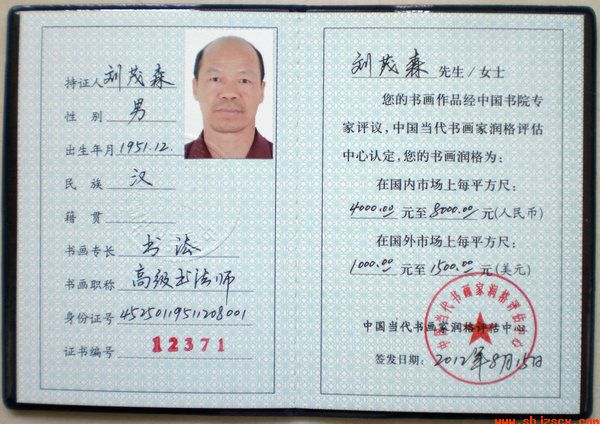 持证人 刘茂森
性 别 男
出生年月 1951.12.
民 族 汉
籍 贯
书画专长 书法
书画职称 高级书法师
身份证号 452501195112080​01
证书编号 12371
刘茂森 先生/女士
您的书画作品经中国书院专
家评议，中国当代书画家润格评估
中心认定，您的书画润格为：
在国内市场上每平方尺：
4000.00 元至 8000.00 元(人民币)
在国外市场上每平方尺：
1000.00 元至 1500.00 元(美元)
中国当代书画家润格评估中心
中国当代书画家润格评估中心
签发日期：2012年8月15日
www.shjzscx.com